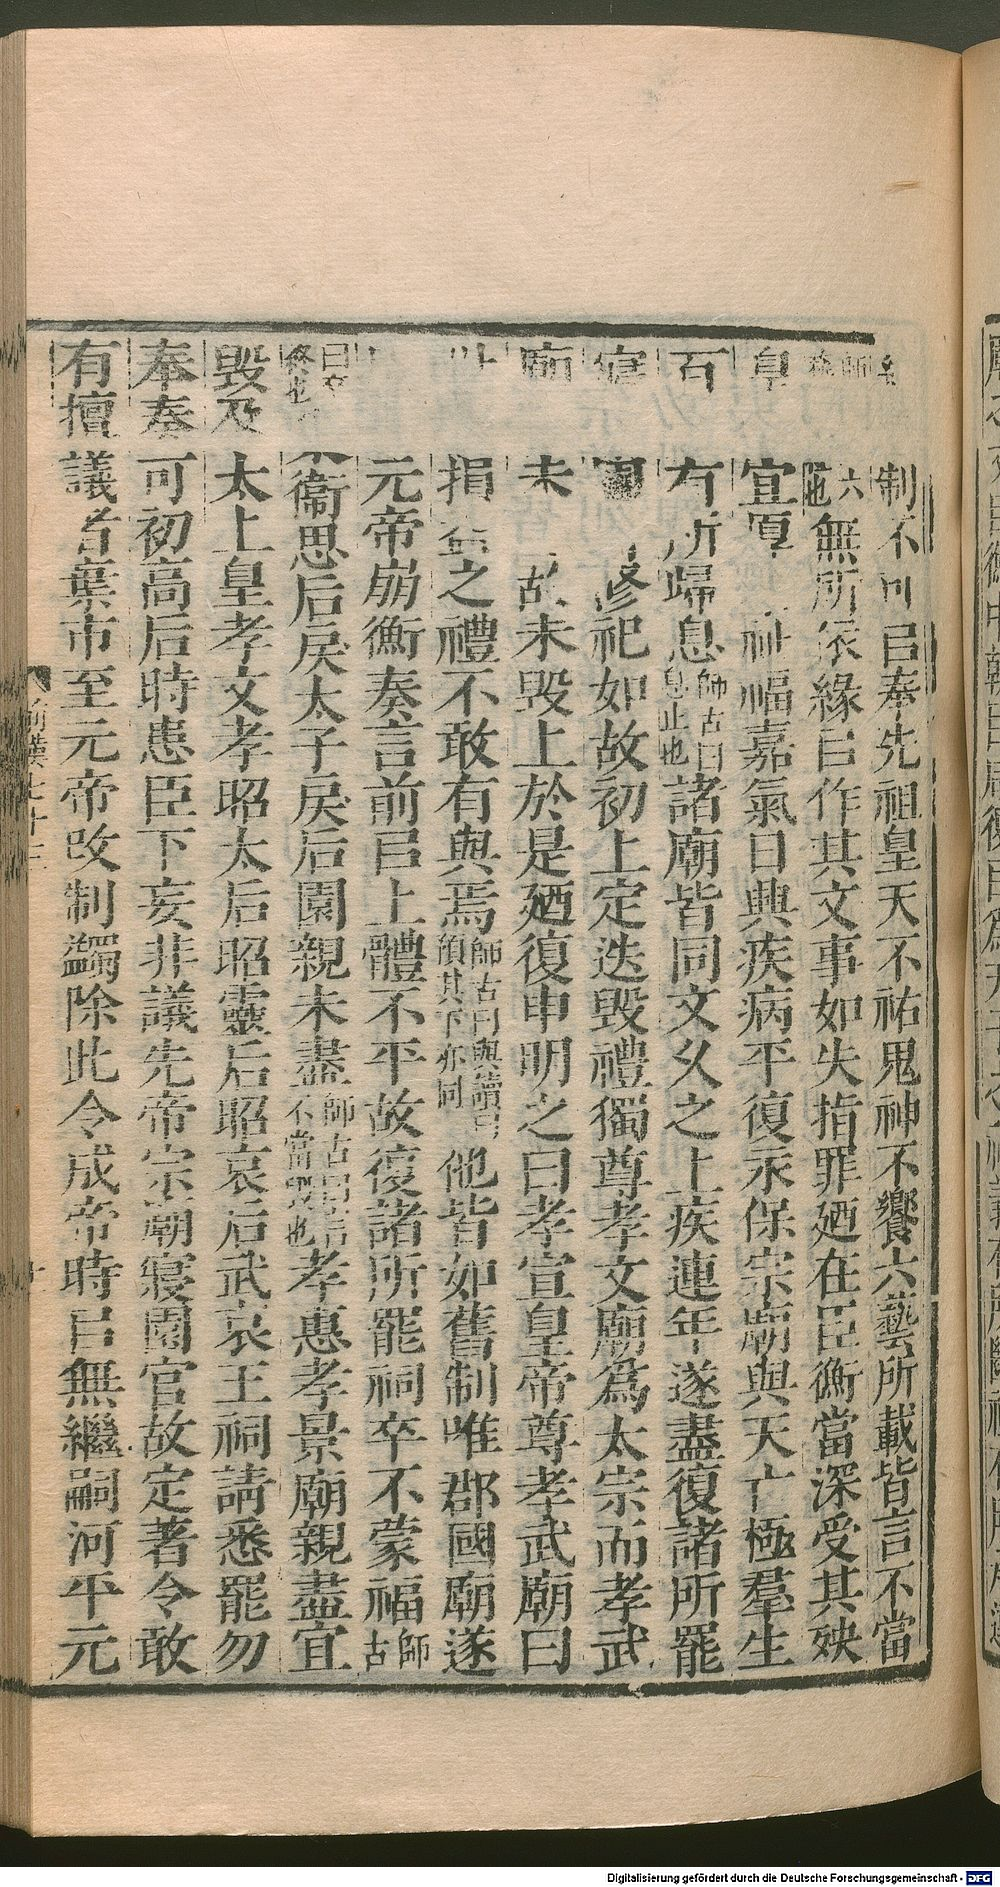 制不可㠯奉先祖皇天不祐鬼神不饗六藝所載皆言不當
無所依緣㠯作其文事如失指罪廼在臣衡當深受其殃
皇宜厚 祉福嘉氣日興疾病平復永保宗廟與天亡極羣生
百有所歸息師古曰息止也諸廟皆同文久之上疾連年遂盡復諸所罷
寢 修祀如故初上定迭毀禮獨尊孝文廟爲太宗而孝武
廟 未 故未毀上於是廼復申明之曰孝宣皇帝尊孝武廟曰
損益之禮不敢有與焉師古曰與讀曰 其下亦同他皆如舊制唯郡國廟遂
元帝崩衡奏言前㠯上體不平故復諸所罷祠卒不蒙福師古
曰 終也 衞思后戾太子戾后園親未盡師古曰言不當毀也孝惠孝景廟親盡宜
毀及太上皇孝文孝昭太后昭靈后昭哀后武哀王祠請悉罷勿
奉奏可初高后時患臣下妄非議先帝宗廟寢園官故定著令敢
有擅議者棄市至元帝改制蠲除此令成帝時㠯無繼嗣河平元
前漢七十三
Digitalisierung gefördert durch die Deutsche Forschungsgemeinschaft - DFG